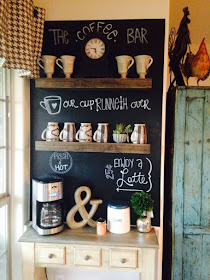 THE COFFEE BAR
Our cup RUNNETH over
FRESH
& HOT
ENJOY a
Latte
&